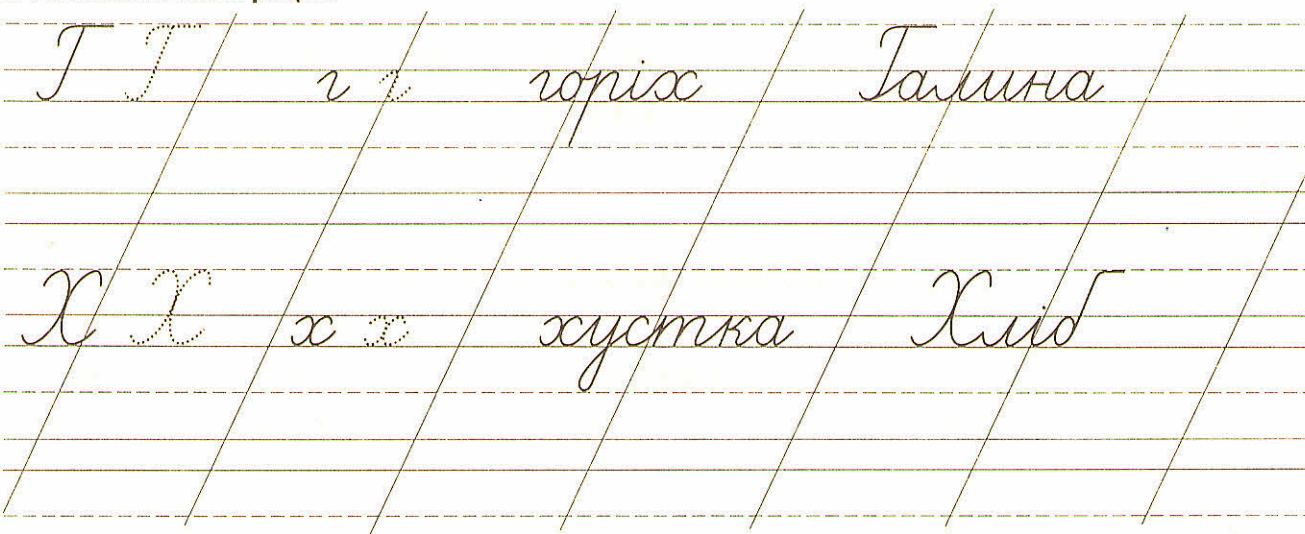 Г Г г г горіх Галина
Х Х х х хустка Хліб